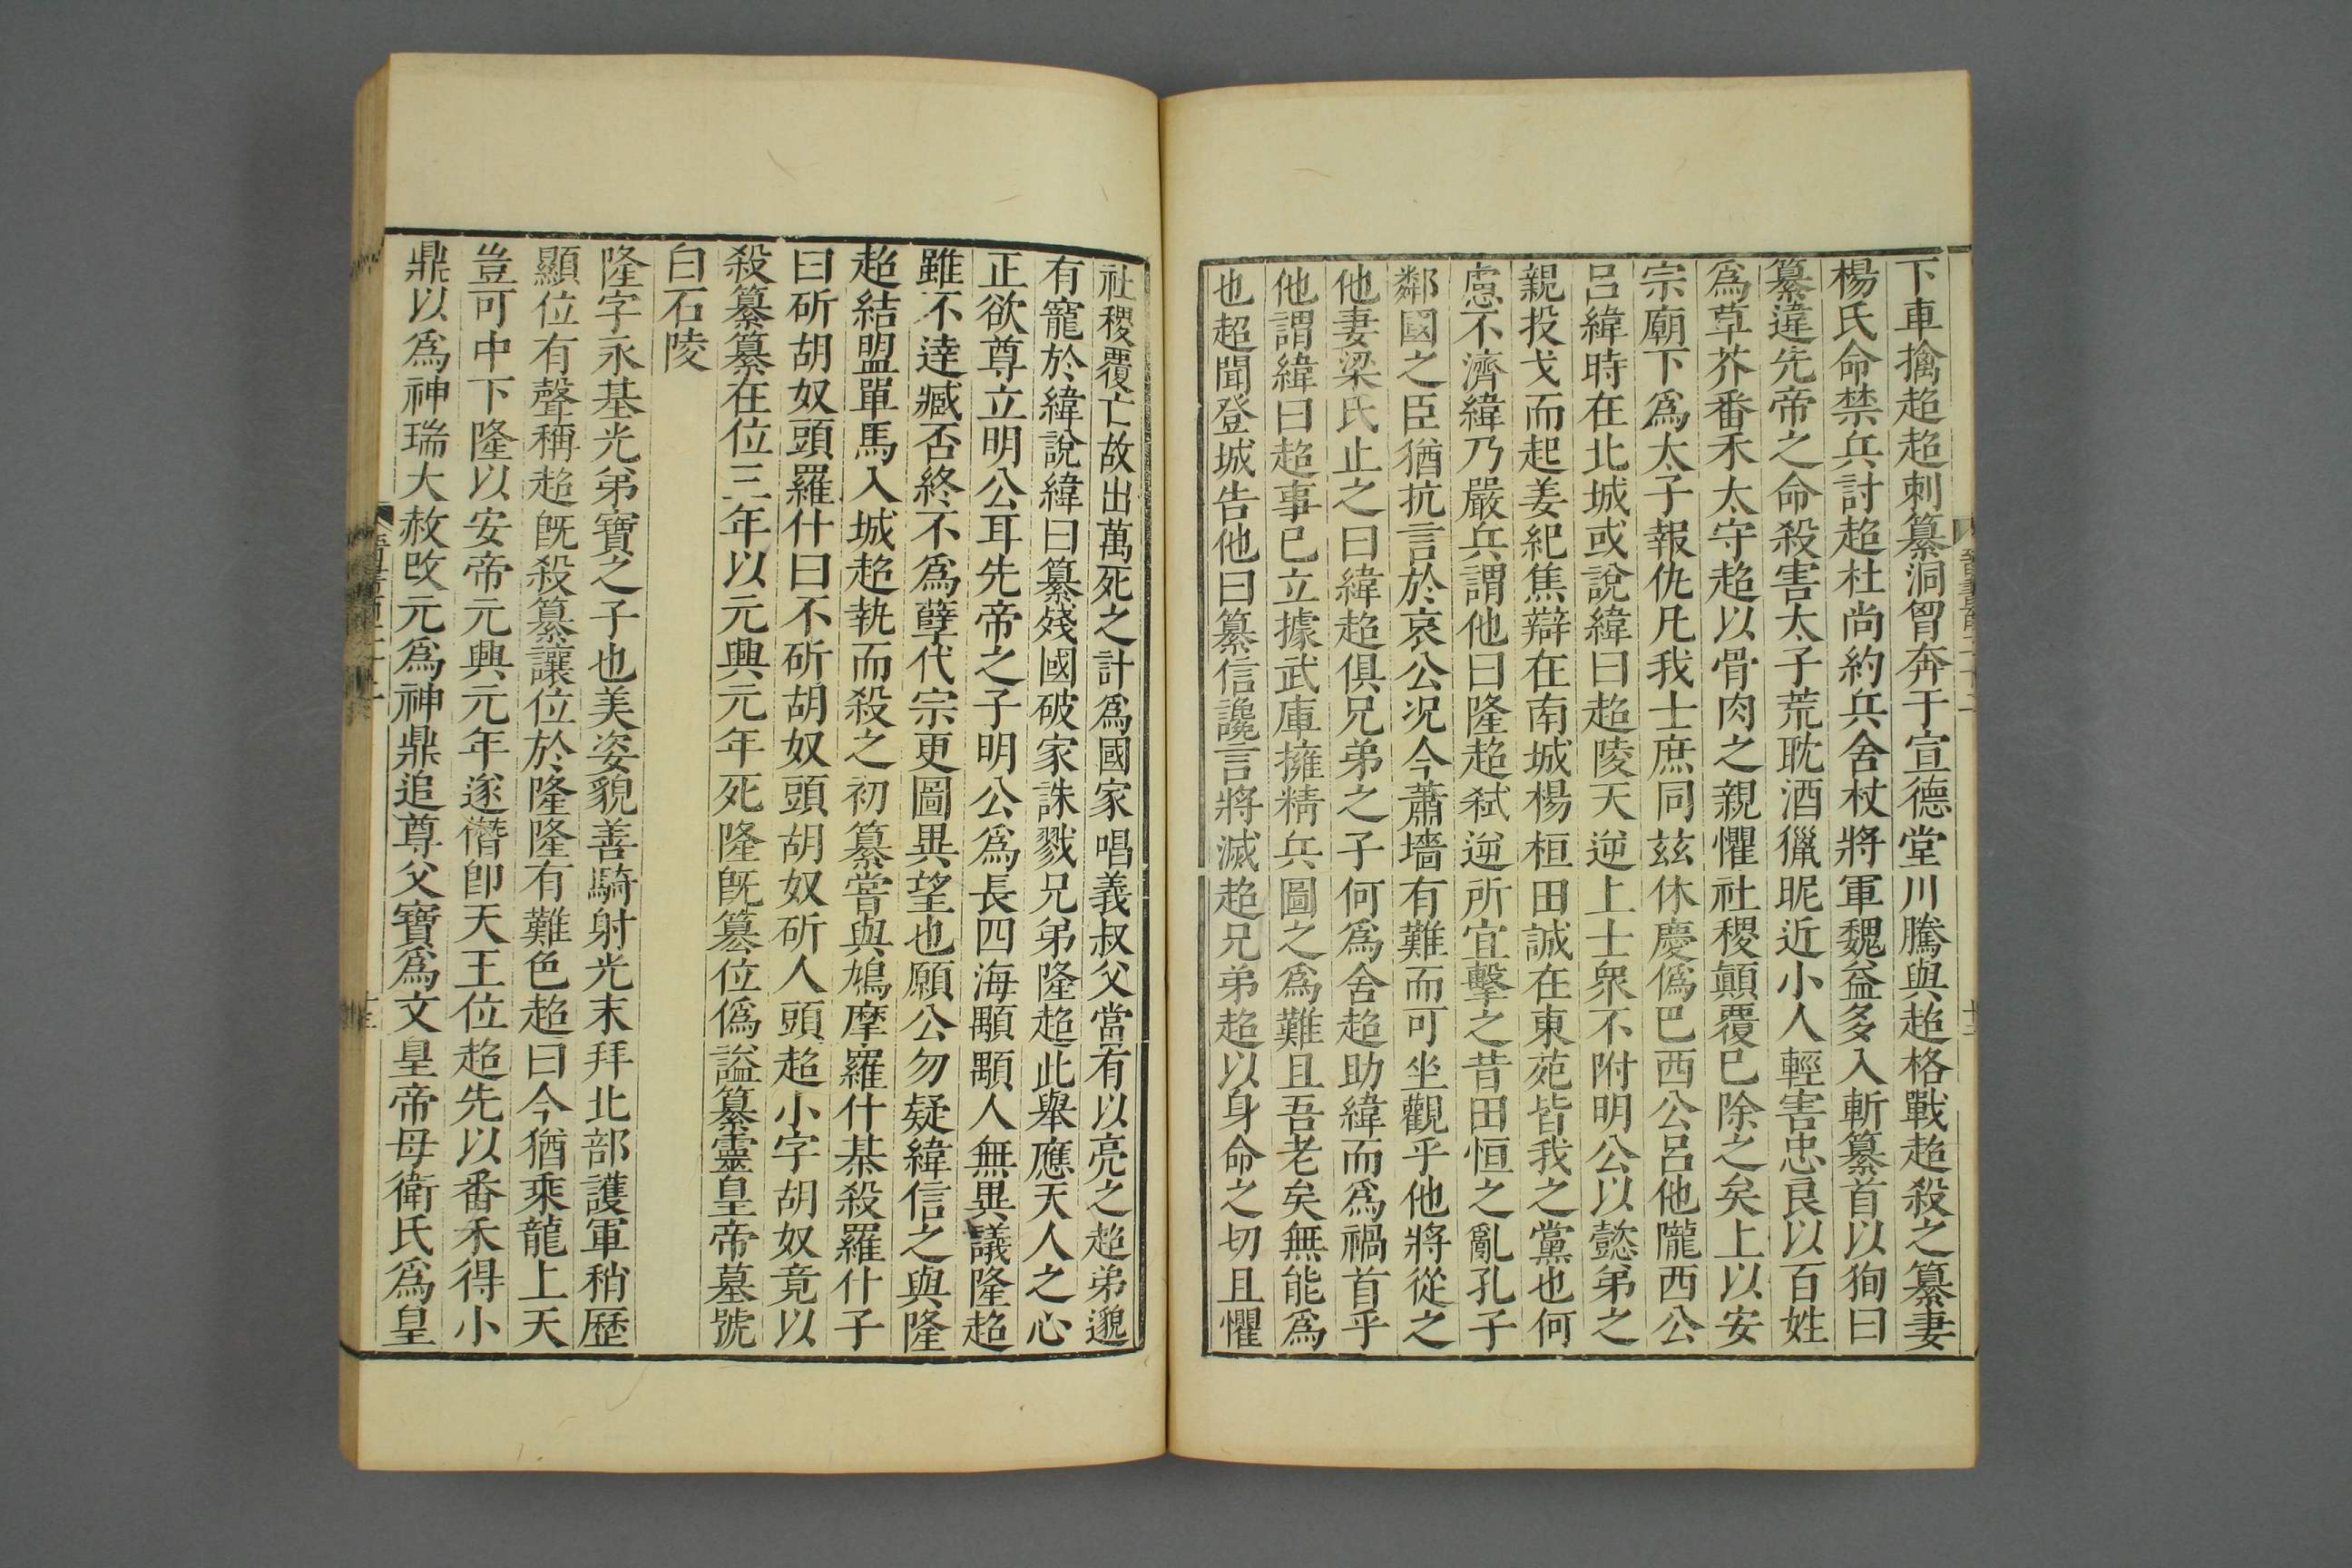 下車擒超超刺纂洞胷奔于宣德堂川騰與超格戰超殺之纂妻
楊氏命禁兵討超杜尚約兵舍杖將軍魏益多入斬纂首以狥曰
纂違先帝之命殺害太子荒耽酒獵昵近小人輕害忠良以百姓
爲草芥番禾太守超以骨肉之親懼社稷顛覆已除之矣上以安
宗廟下爲太子報仇凡我士庶同兹休慶僞巴西公呂他隴西公
呂緯時在北城或說緯曰超陵天逆上士衆不附明公以懿弟之
親投戈而起姜紀焦辯在南城楊桓田誠在東苑皆我之黨也何
慮不濟緯乃嚴兵謂他曰隆超弑逆所宜擊之昔田恒之亂孔子
鄰國之臣猶抗言於哀公况今蕭墻有難而可坐觀乎他將從之
他妻梁氏止之曰緯超俱兄弟之子何爲舍超助緯而爲禍首乎
他謂緯曰超事已立據武庫擁精兵圖之爲難且吾老矣無能爲
也超聞登城告他曰纂信讒言將滅超兄弟超以身命之切且懼
社稷覆亡故出萬死之計爲國家唱義叔父當有以亮之超弟邈
有寵於緯說緯曰纂殘國破家誅戮兄弟隆超此舉應天人之心
正欲尊立明公耳先帝之子明公爲長四海顒顒人無異議隆超
雖不達臧否終不爲孽代宗更圖異望也願公勿疑緯信之與隆
超結盟單馬入城超執而殺之初纂嘗與鳩摩羅什棊殺羅什子
曰斫胡奴頭羅什曰不斫胡奴頭胡奴斫人頭超小字胡奴竟以
殺纂纂在位三年以元興元年死隆旣篡位僞謚纂靈皇帝墓號
白石陵
隆字永基光弟寶之子也美姿貌善騎射光末拜北部護軍稍歷
顯位有聲稱超旣殺纂讓位於隆隆有難色超曰今猶乘龍上天
豈可中下隆以安帝元興元年遂僭卽天王位超先以番禾得小
鼎以爲神瑞大赦改元爲神鼎追尊父寶爲文皇帝母衛氏爲皇